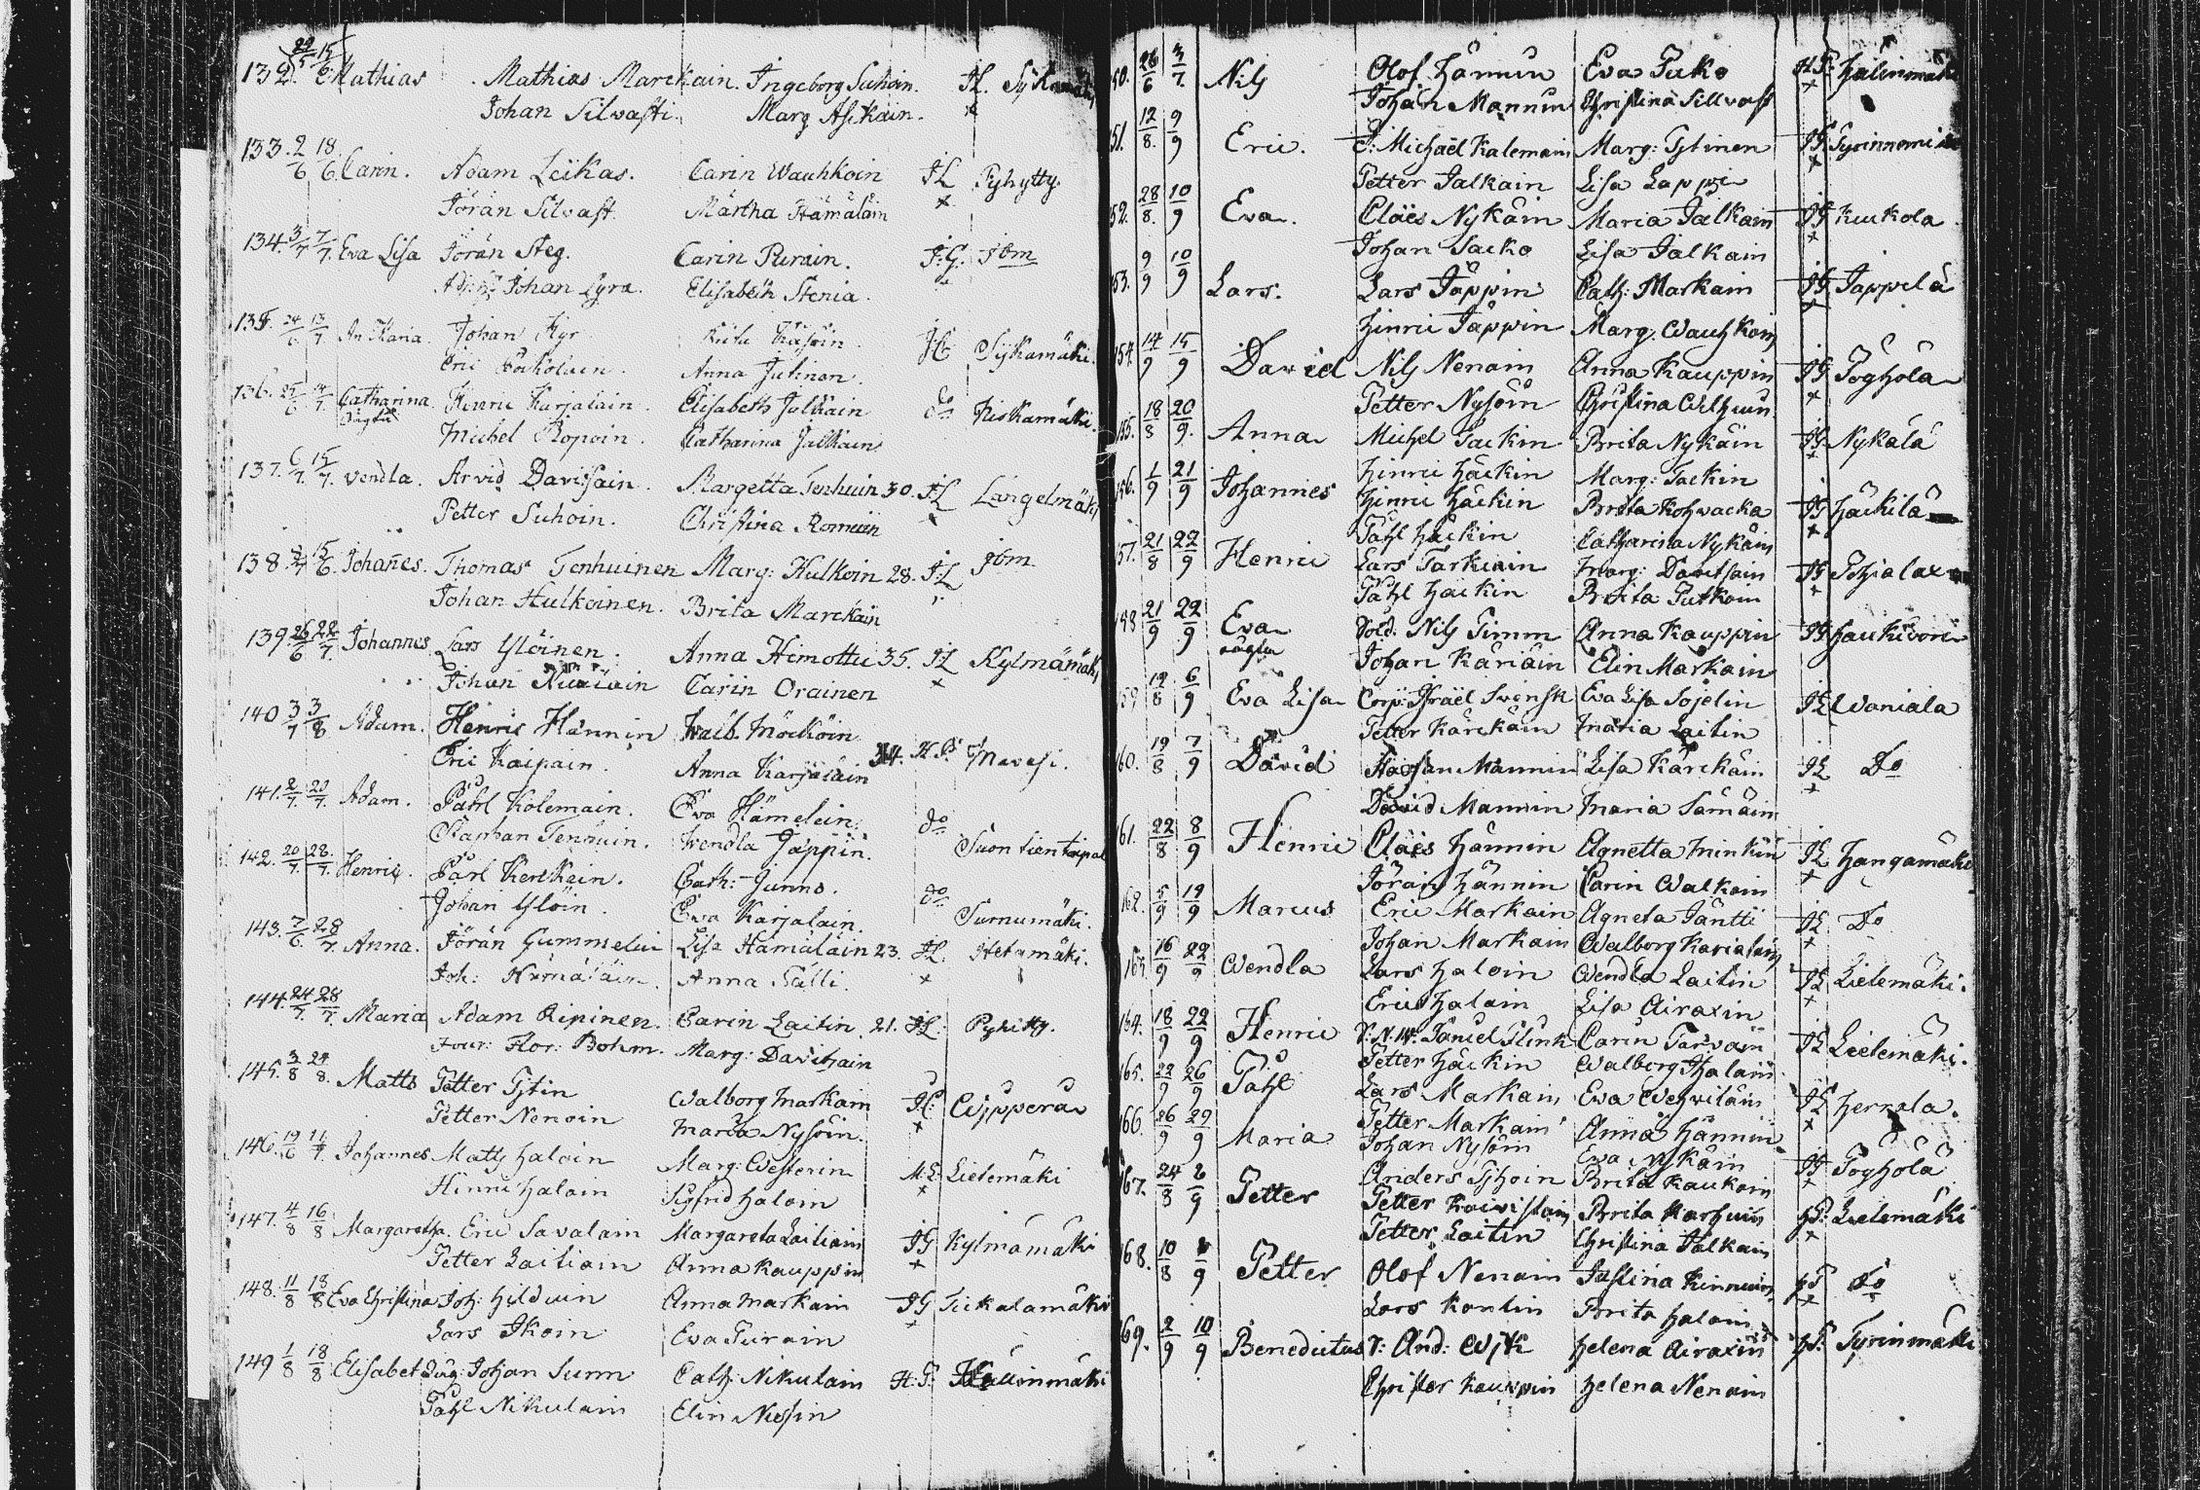 132. 29/5 15/6 Mathias Mathias Marckain. Ingeborg Suhoin. JL.
Johan Silvasti. Marg Asikain. x
133. 2/6 18/6 Carin. Adam Leikas. Carin Wauhkoin JL Pyhytty.
Jöran Silvast. Märtha Hämäläin x
134. 3/7 7/7 Eva Lisa Jöran Steg. Carin Purain. J:G: ibm
Johan Lyra. Elisabeth Stenia.
135. 24/6 13/7 An Karia. Johan Kyr Sijkamäki.
Eric Anna Jutinen.
136. 25/6 14/7 Catharina Hinric Karjalain. Elisabeth Julkuin do Kiskamäki.
oägta Michel Ropoin. Catharina Jalkain
137. 6/7 15/7 Vendla. Arvid Davitsain. Margetta Tenhuin 30. JL Längelmäki
Petter Suhoin. Christina Romuin x
138. 15/6 Johañes. Thomas Tenhuinen Marg: Hulkoin 28. J:L ibm
Johan Hulkoinen. Brita Marckain
139. 26/6 22/7 Johannes Lars Ylöinen. Anna Himottu 35. JL Kylmämäki
Johan Carin Orainen x
140 3/7 3/8 Adam. Henric Hännin Walb. Möcköin
Eric Kaipain. Anna Karjalain 34. H.P.
141. 2/7 20/7 Adam. Påhl Kolemain. Eva Hämelein. do
Staphan Tenhuin. Wendla Jäppin. Suontientaipal
142. 20/7 28/7 Henric. Pårl Kerkkein. Cath: Junno. do
Johan Ylöin. Eva Karjalain. Surnumäki.
143. 7/6 28/7 Anna. Jöran Gummelui Lisa Hämäläin 23. JL. Hetamäki.
Joh: Hämäläin. Anna Tälli. x
144. 24/7 28/7 Maria Adam Ripinen. Carin Laitin 21. JL. Pyhitty.
Four: Flor: Bohm. Marg: Davitsain
145. 3/8 24/8 Matts Petter Tjtin Walborg Markain JL: Wipperä
Petter Nenoin Maria Nysöin. x
146. 19/6 11/7 Johannes Matts Haloin Marg: Westerin M.L: Lielemäki
Hinric Halain Sigfrid Halain x
147. 4/8 16/8 Margaretha. Eric Savalain Margareta Laitiain JG Kylmämäki
Petter Laitiain Anna Kauppin x
148. 11/8 18/8 Eva Christina Joh: Hilduin Anna Markain JG Tiikalamäki
Lars Ikoin Eva Purain
149 1/8 18/8 Elisabet Dräg: Johan Surm Cath: Nikulain H:P: Hällinmäki
Påhl Nikulain Elin Nissin
150. 26/6 3/7 Nils Olof Hännin Eva Puko H:P: Hällinmäki
Johan Mannin Christina Sillvast x
151. 12/8 9/9 Eric. S: Michaël Kalemain Marg: Tjtinen JG Tyrinnemi
Petter Jalkain Lisa Lappi x
152. 28/8 10/9 Eva. Claës Nykäin Maria Jalkain JG Kuukola
Johan Sacko Lisa Jalkain x
153. 9/9 10/9 Lars. Lars Jäppin Cath: Markain JG Jäppilä
Hinric Jäppin Marg. Wauhkoin
154. 14/9 15/9 David Nils Nenoin Anna Kauppin JG Poghola
Petter Nysöin Christina Wilhuin x
155. 18/8 20/9. Anna Michel Tackin Brita Nykäin JG Nykälä
Hinric Häckin Marg: Tackin x
156. 1/9 21/9 Johannes Hinric Häckin Brita Kohwacka JG Häckilä
Påhl Häckin Catharina Nykäin x
157. 21/8 22/9 Henric Lars Tarkiain Marg: Davitsain JG Pohjalax
Påhl Häckin Brita Putkoin x
158 21/9 22/9 Eva Sold. Nils Timm Anna Kauppin JG Haukivori
oägta Johan Käriäin Elin Markain
159 12/8 6/9 Eva Lisa Corp: Israël Svensk Eva Lisa Sojelin JL Waniala
Petter Kärckäin Maria Laitin
160. 19/8 7/9 David Staffan Mannin Lisa Kärckäin JL Do
David Mannin Maria Samain x
161. 22/8 8/9 Henric Claës Hännin Agnetta Minkin JL Hangamäki
Jöran Hännin Carin Walkain x
162. 5/9 19/9 Marcus Eric Markain Agneta Jäntti JL Do
Johan Markain Walborg Karialain x
163. 16/9 22/9 Wendla Lars Haloin Wendla Laitin JL Lielemäki.
Eric Halain Lisa Airaxin x
164. 18/9 22/9 Henric Daniel Flink Carin Tarvain JL Lielemäki.
Petter Häckin Walborg Halain
165. 22/9 26/9 Påhl Lars Markain Eva Wehvilain JL Herrala.
Petter Markain Anna Hännin x
166. 26/9 29/9 Maria Johan Nysöin Eva Nykäin JG Poghola
Anders Tjhoin Brita Kaukoin x
167. 24/8 2/9 Petter Petter Koivistain Brita Korhuin HP: Lielemäki
Petter Laitin Christina Jalkain x
168. 10/8 9 Petter Olof Nenoin Justina Kinnuin HP Do
Lars Kontin Brita Halain x
169. 2/9 10/9 Benedictus V: And: Wijk Helena Airaxin HP: Tyrinmäki
Christer Kauppin Helena Nenoin